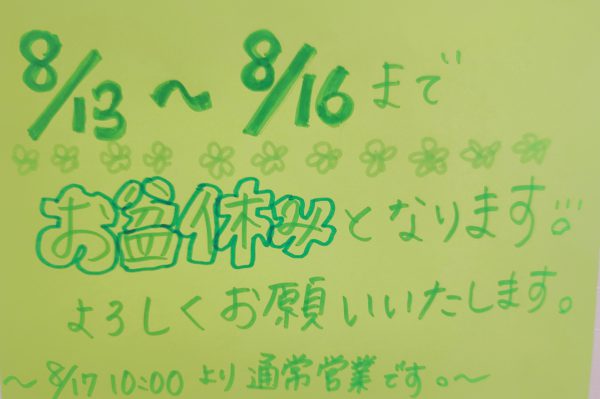 8/13 〜 8/16 まで
お盆休みとなります。
よろしくお願いいたします。
〜 8/17 10:00 より 通常営業です。〜